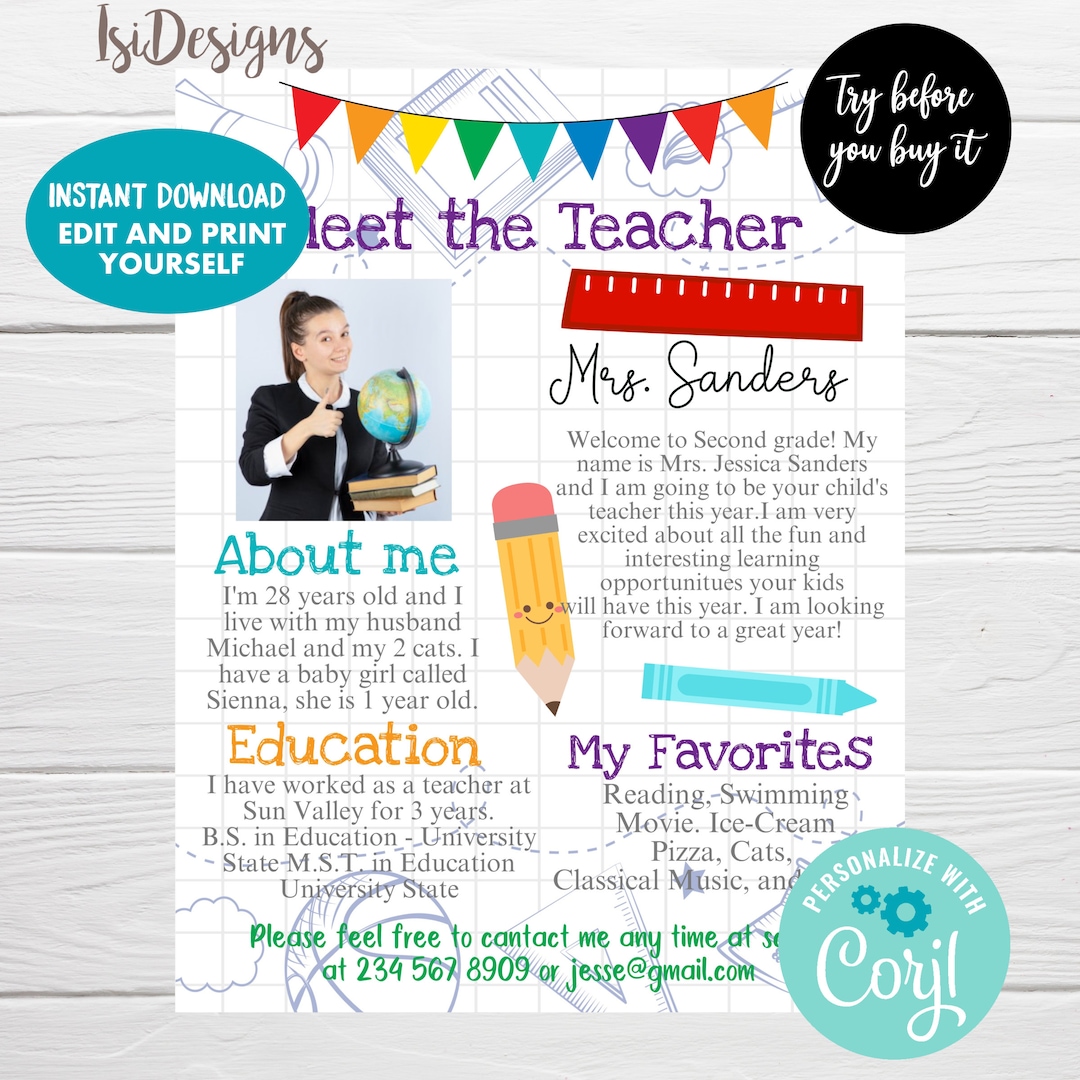 IsiDesigns
Try before
you buy it
INSTANT DOWNLOAD
EDIT AND PRINT
YOURSELF
the Teacher
Mrs. Sanders
Welcome to Second grade! My
name is Mrs. Jessica Sanders
and I am going to be your child's
teacher this year.I am very
excited about all the fun and
interesting learning
opportunitues your kids
will have this year. I am looking
forward to a great year!
About me
I'm 28 years old and I
live with my husband
Michael and my 2 cats. I
have a baby girl called
Sienna, she is 1 year old.
Education
I have worked as a teacher at
Sun Valley for 3 years.
B.S. in Education - University
State M.S.T. in Education
University State
My Favorites
Reading, Swimming
Movie. Ice-Cream
Pizza, Cats,
Classical Music, and
Please feel free to cantact me any time at
at 234 567 8909 or jesse@gmail.com
PERSONALIZE WITH
Corjl